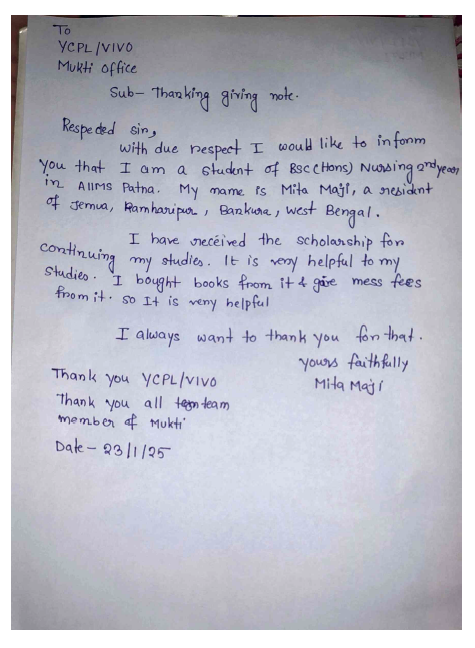 To
YCPL/VIVO
Mukti office
Sub- Thanking giving note.
Respeded sir,
with due respect I would like to inform
you that I am a student of BSC (Hons) Nursing 2nd year
in AIIMS Patna. My name is Mita Maji, a resident
of Jemua, Ramharipur, Bankura, West Bengal.
I have received the scholarship for
continuing my studies. It is very helpful to my
studies. I bought books from it & give mess fees
from it. so It is very helpful
I always want to thank you for that.
yours faithfully
Mita Maji
Thank you YCPL/VIVO
Thank you all team
member of Mukti
Date - 23/1/25